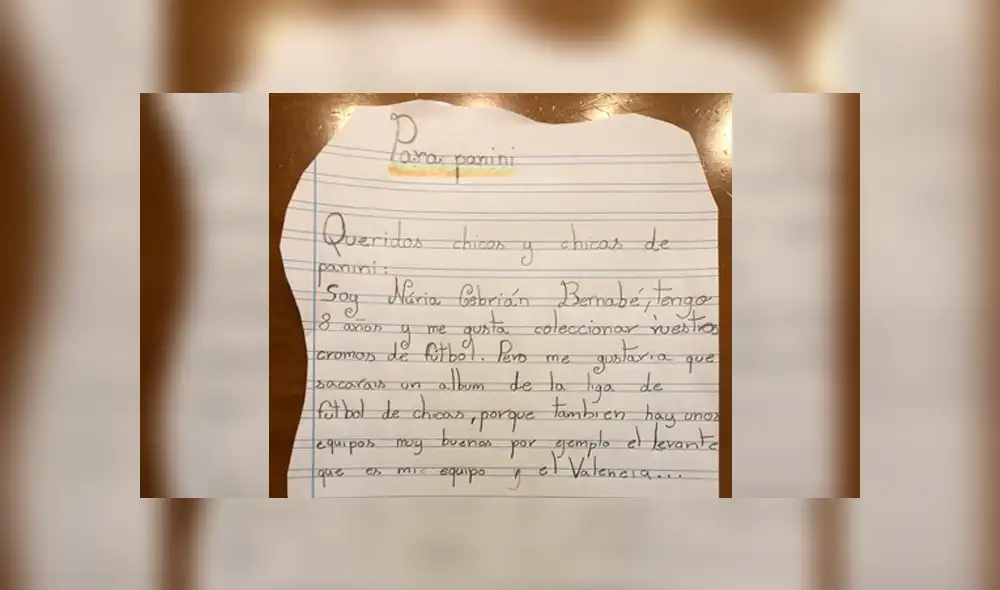 Para panini
Queridos chicos y chicas de
panini:
Soy Núria Cebrián Bernabé, tengo
8 años y me gusta coleccionar vuestros
cromos de fútbol. Pero me gustaria que
sacarais un album de la liga de
fútbol de chicas, porque tambien hay unos
equipos muy buenos por ejemplo el levante
que es mi equipo y el Valencia...